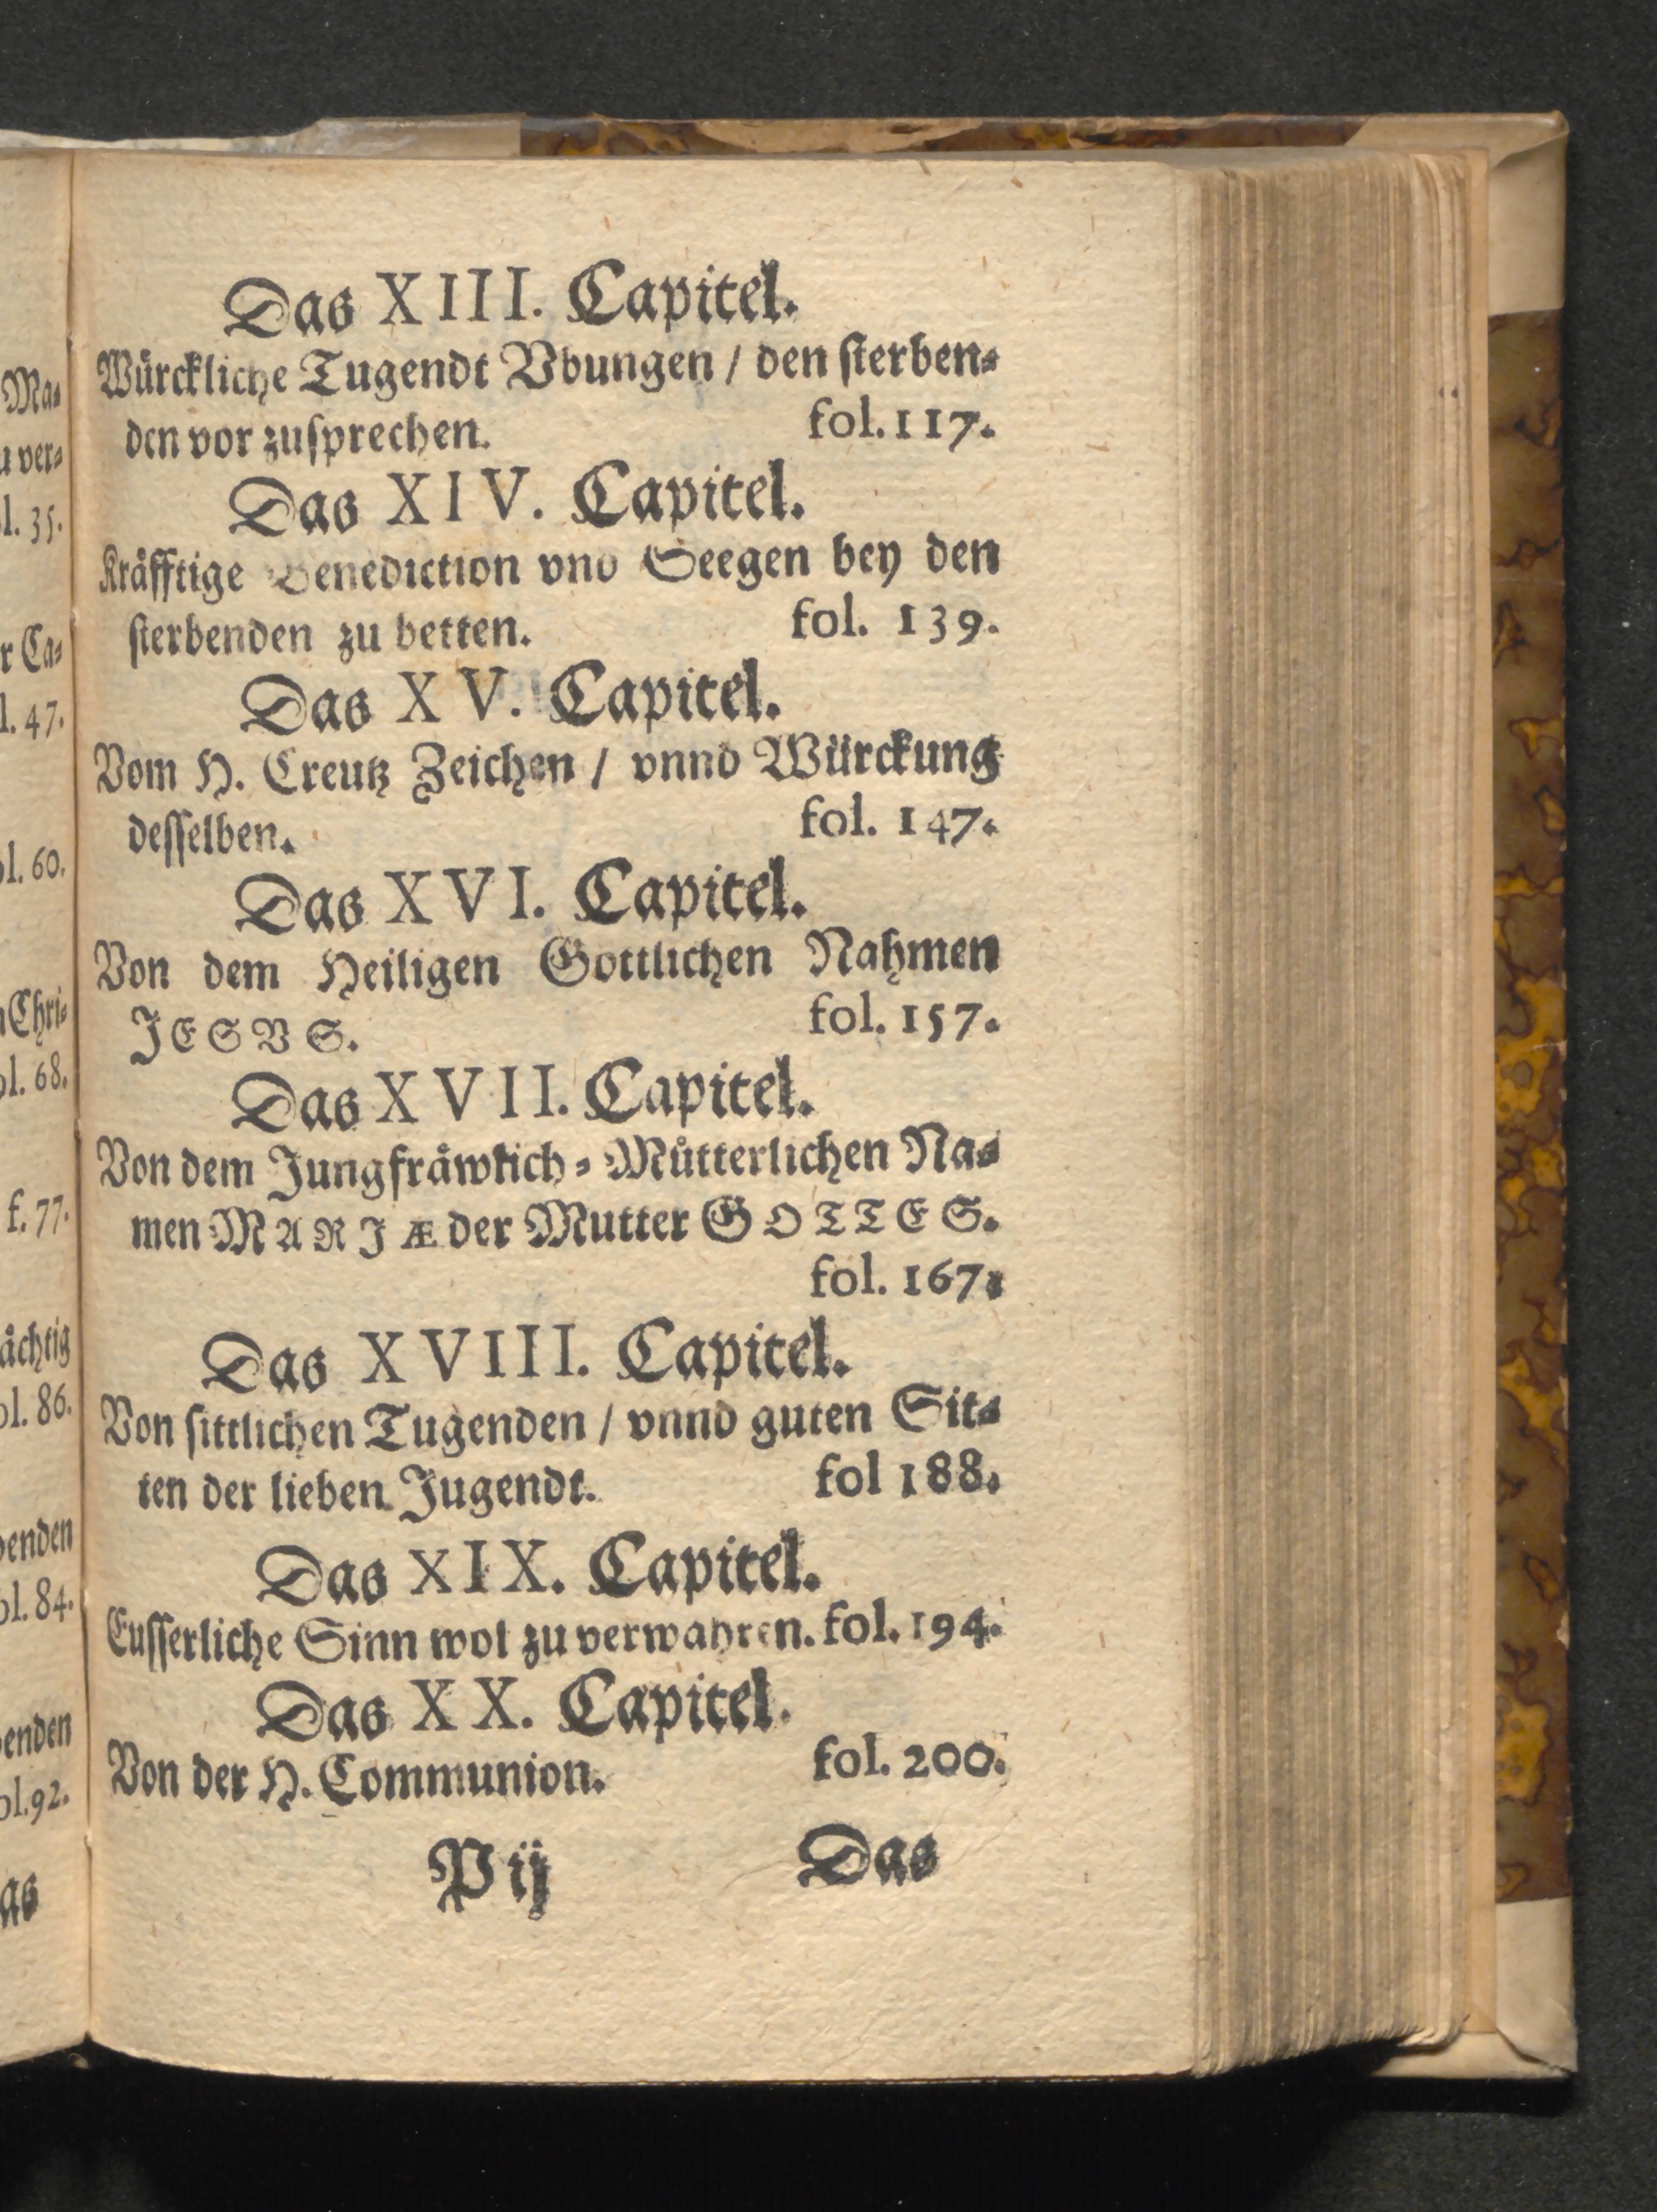 Das XIII. Capitel.
Würckliche Tugendt Vbungen / den ſterben⸗
den vor zuſprechen. fol. 117.
Das XIV. Capitel.
Kråfftige Benediction vnd Seegen bey den
ſterbenden zu betten. fol. 139.
Das XV. Capitel.
Vom H. Creutz Zeichen / vnnd Würckung
deſſelben. fol. 147.
Das XVI. Capitel.
Von dem Heiligen Gottlichen Nahmen
JESVS. fol. 157.
Das XVII. Capitel.
Von dem Jungfråwlich⸗Můtterlichen Na⸗
men MARJÆ der Mutter GOTTES.
fol. 167.
Das XVIII. Capitel.
Von ſittlichen Tugenden / vnnd guten Sit⸗
ten der lieben Jugendt. fol 188.
Das XIX. Capitel.
Euſſerliche Sinn wol zu verwahren. fol. 194.
Das XX. Capitel.
Von der H. Communion. fol. 200.
P ij Das
Ma⸗
u ver⸗
l. 35.
r Ca⸗
l. 47.
ol. 60.
Chri⸗
ol. 68.
f. 77.
åchtig
ol. 86.
benden
ol. 84.
benden
ol. 92.
as